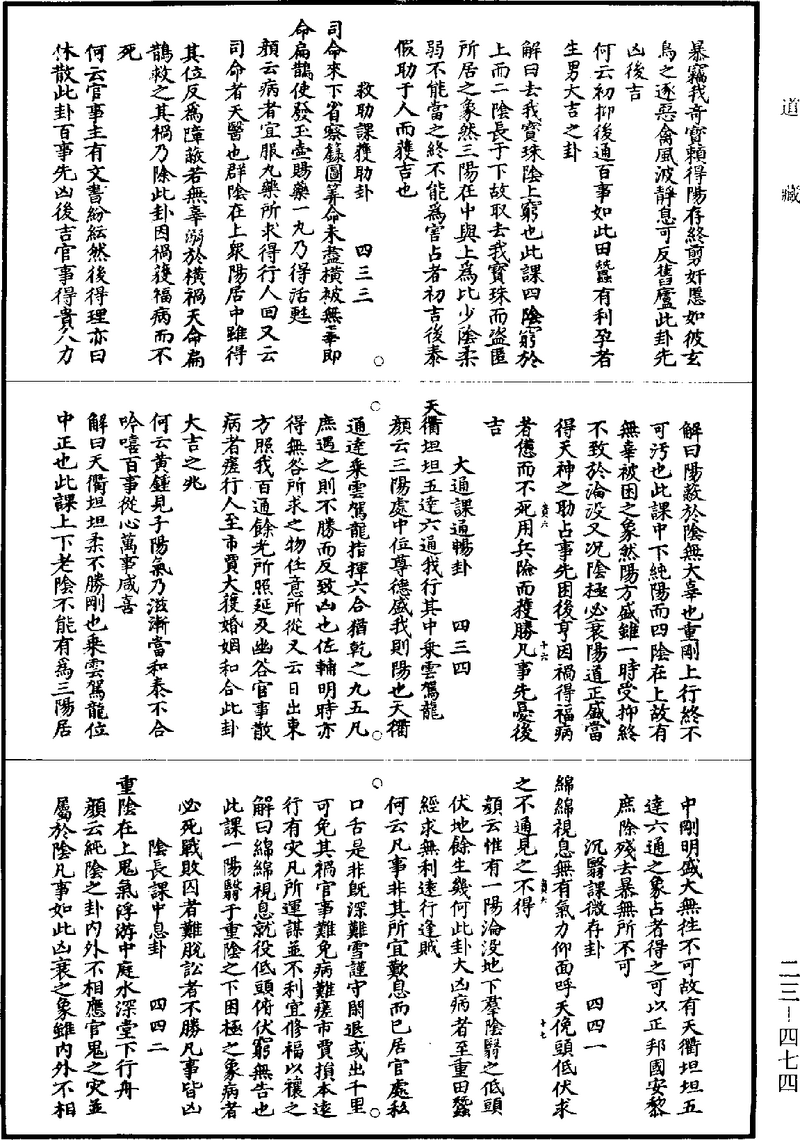 道藏
暴竊我奇寶賴得陽存終剪奸慝如彼玄
鳥之逐惡禽風波靜息可反舊廬此卦先
凶後吉
何云初抑後通百事如此田蠶有利孕者
生男大吉之卦
解曰去我寶珠陰上窮也此課四陰窮於
上而二陰長于下故取去我寶珠而盜匿
所居之象然三陽在中與上為比少陰柔
弱不能當之終不能為害占者初吉後泰
假助于人而獲吉也
救助課獲助卦 四三三
司命來下省察籙圖筭命未盡橫被無辜即
命扁鵲使發玉壺賜藥一丸乃得活甦
顏云病者宜服丸藥所求得行人回又云
司命者天醫也群陰在上衆陽居中雖得
其位反為障蔽若無辜溺於橫禍天命扁
鵲救之其禍乃除此卦因禍獲福病而不
死
何云官事主有文書紛紜然後得理亦曰
休散此卦百事先凶後吉官事得貴人力
解曰陽蔽於陰無大辜也重剛上行終不
可汚也此課中下純陽而四陰在上故有
無辜被困之象然陽方盛雖一時受抑終
不致於淪沒又況陰極必衰陽道正盛當
得天神之助占事先困後亨因禍得福病
者憊而不死用兵險而獲勝凡事先憂後
吉
大通課通暢卦 四三四
天衢坦坦五達六通我行其中乘雲駕龍
顏云三陽處中位尊德盛我則陽也天衢
通達乘雲駕龍指揮六合猶乾之九五凡
庶遇之則不勝而反致凶也佐輔明時亦
得無咎所求之物任意所從又云日出東
方照我百通餘光所照延及幽谷官事散
病者瘥行人至市賈大獲婚姻和合此卦
大吉之兆
何云黄鍾見子陽氣乃滋漸當和泰不合
吟嘻百事從心萬事咸喜
解曰天衢坦坦柔不勝剛也乘雲駕龍位
中正也此課上下老陰不能有為三陽居
中剛明盛大無往不可故有天衢坦坦五
達六通之象占者得之可以正邦國安黎
庶除殘去暴無所不可
沉翳課微存卦 四四一
綿綿視息無有氣力仰面呼天俛頭低伏求
之不通見之不得
顏云惟有一陽淪没地下羣陰翳之低頭
伏地餘生幾何此卦大凶病者至重田蠶
經求無利遠行逢賊
何云凡事非其所宜歎息而已居官處私
口舌是非既深難雪謹守閑退或出千里
可免其禍官事難免病難瘥市賈損本遠
行有灾凡所運謀並不利宜修福以禳之
解曰綿綿視息就役低頭俯伏窮無告也
此課一陽翳于重陰之下困極之象病者
必死戰敗囚者難脫訟者不勝凡事皆凶
陰長課中息卦 四四二
重陰在上鬼氣浮游中庭水深堂下行舟
顏云純陰之卦内外不相應官鬼之灾並
屬於陰凡事如此凶衰之象雖内外不相
二三—四七四